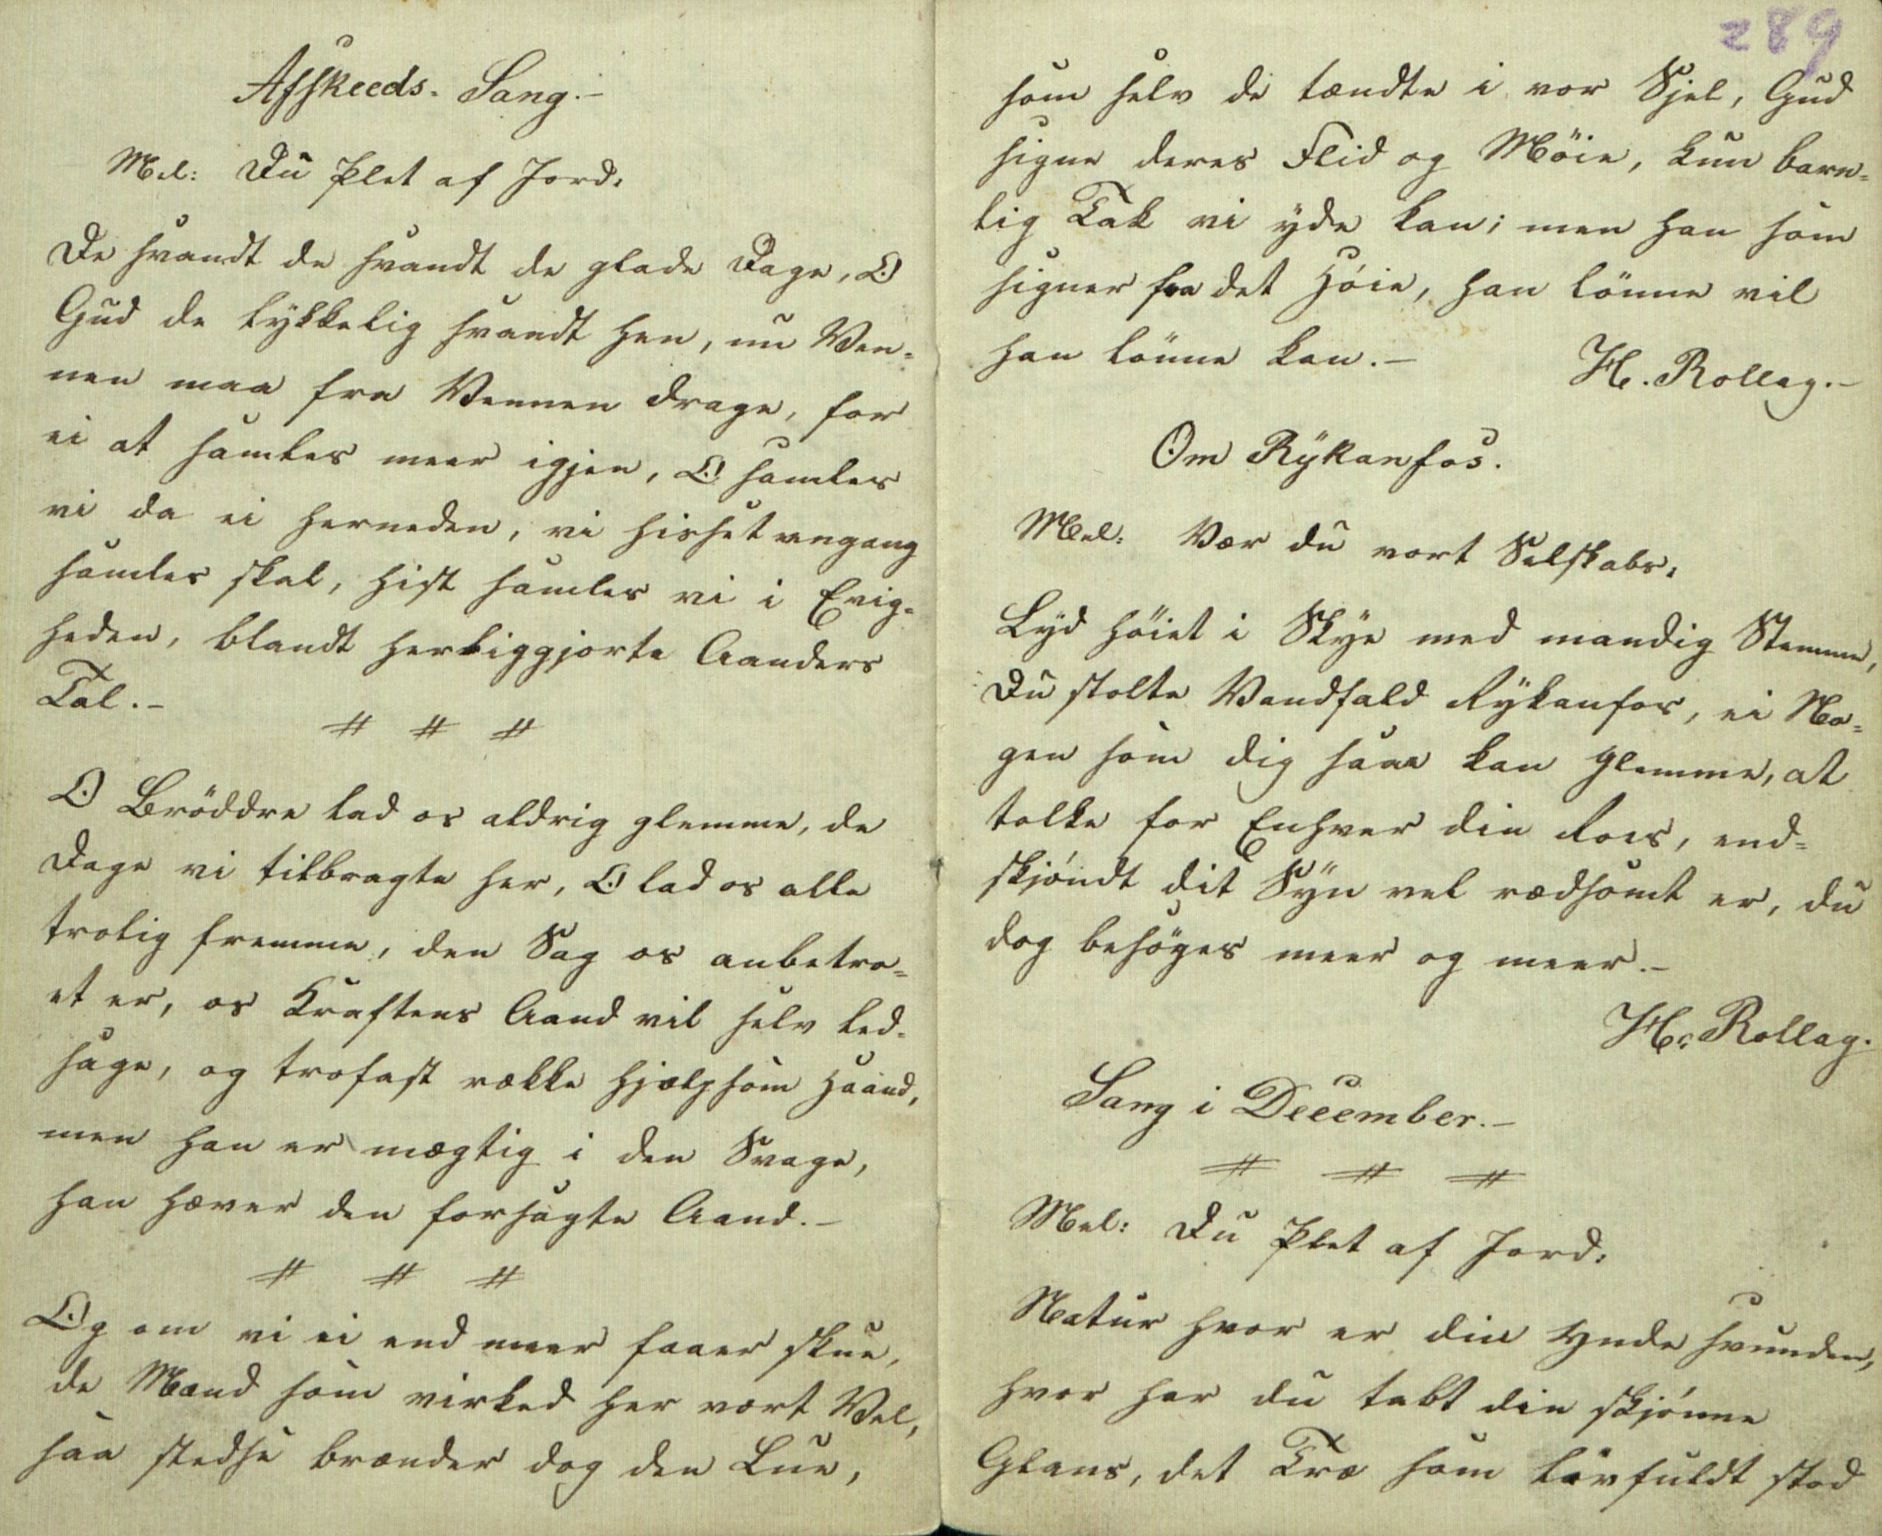 Afskeeds-Sang.-
Mel: Du Plet af Jord:
De svandt de svandt de glade Dage, O
Gud de lykkelig svandt hen, nu Ven-
nen maa fra Vennen drage, for
ei at samles meer igjen, O samles
vi da ei herneden, vi hisset engang
samles skal, hist samles vi i Evig-
heden, blandt herliggjorte Aanders
Tal.-
# # #
O Brøddre lad os aldrig glemme, de
Dage vi tilbragte her, O lad os alle
trolig fremme, den Sag os anbetro-
et er, os Kraftens Aand vil selv led-
sage, og trofast række hjælpsom Haand,
men han er mægtig i den Svage,
han hæver den forsagte Aand.-
# # #
Og om vi ei end meer faaer skue,
de Mænd som virked her vort Vel,
saa stedse brænder dog den Lue,
289
som selv de tændte i vor Sjel, Gud
signe deres Flid og Möie, kun barn-
lig Tak vi yde kan; men han som
signer fra det Høie, han lönne vil
han lönne kan.-
H. Rollag.-
Om Rÿkanfos.
Mel: Vær du vort Selskabs:
Lyd höiet i Skye med mandig Stemme,
Du stolte Vandfald Rÿkanfos, ei No-
gen som dig saae kan glemme, at
tolke for Enhver din Roes, end-
skjöndt dit Sÿn vel rædsomt er, du
dog besöges meer og meer.-
H: Rollag.
Sang i December.-
# # #
Mel: Du Plet af Jord:
Natur hvor er din Ynde svunden,
hvor har du tabt din skjønne
Glans, det Træ som lövfuldt stod